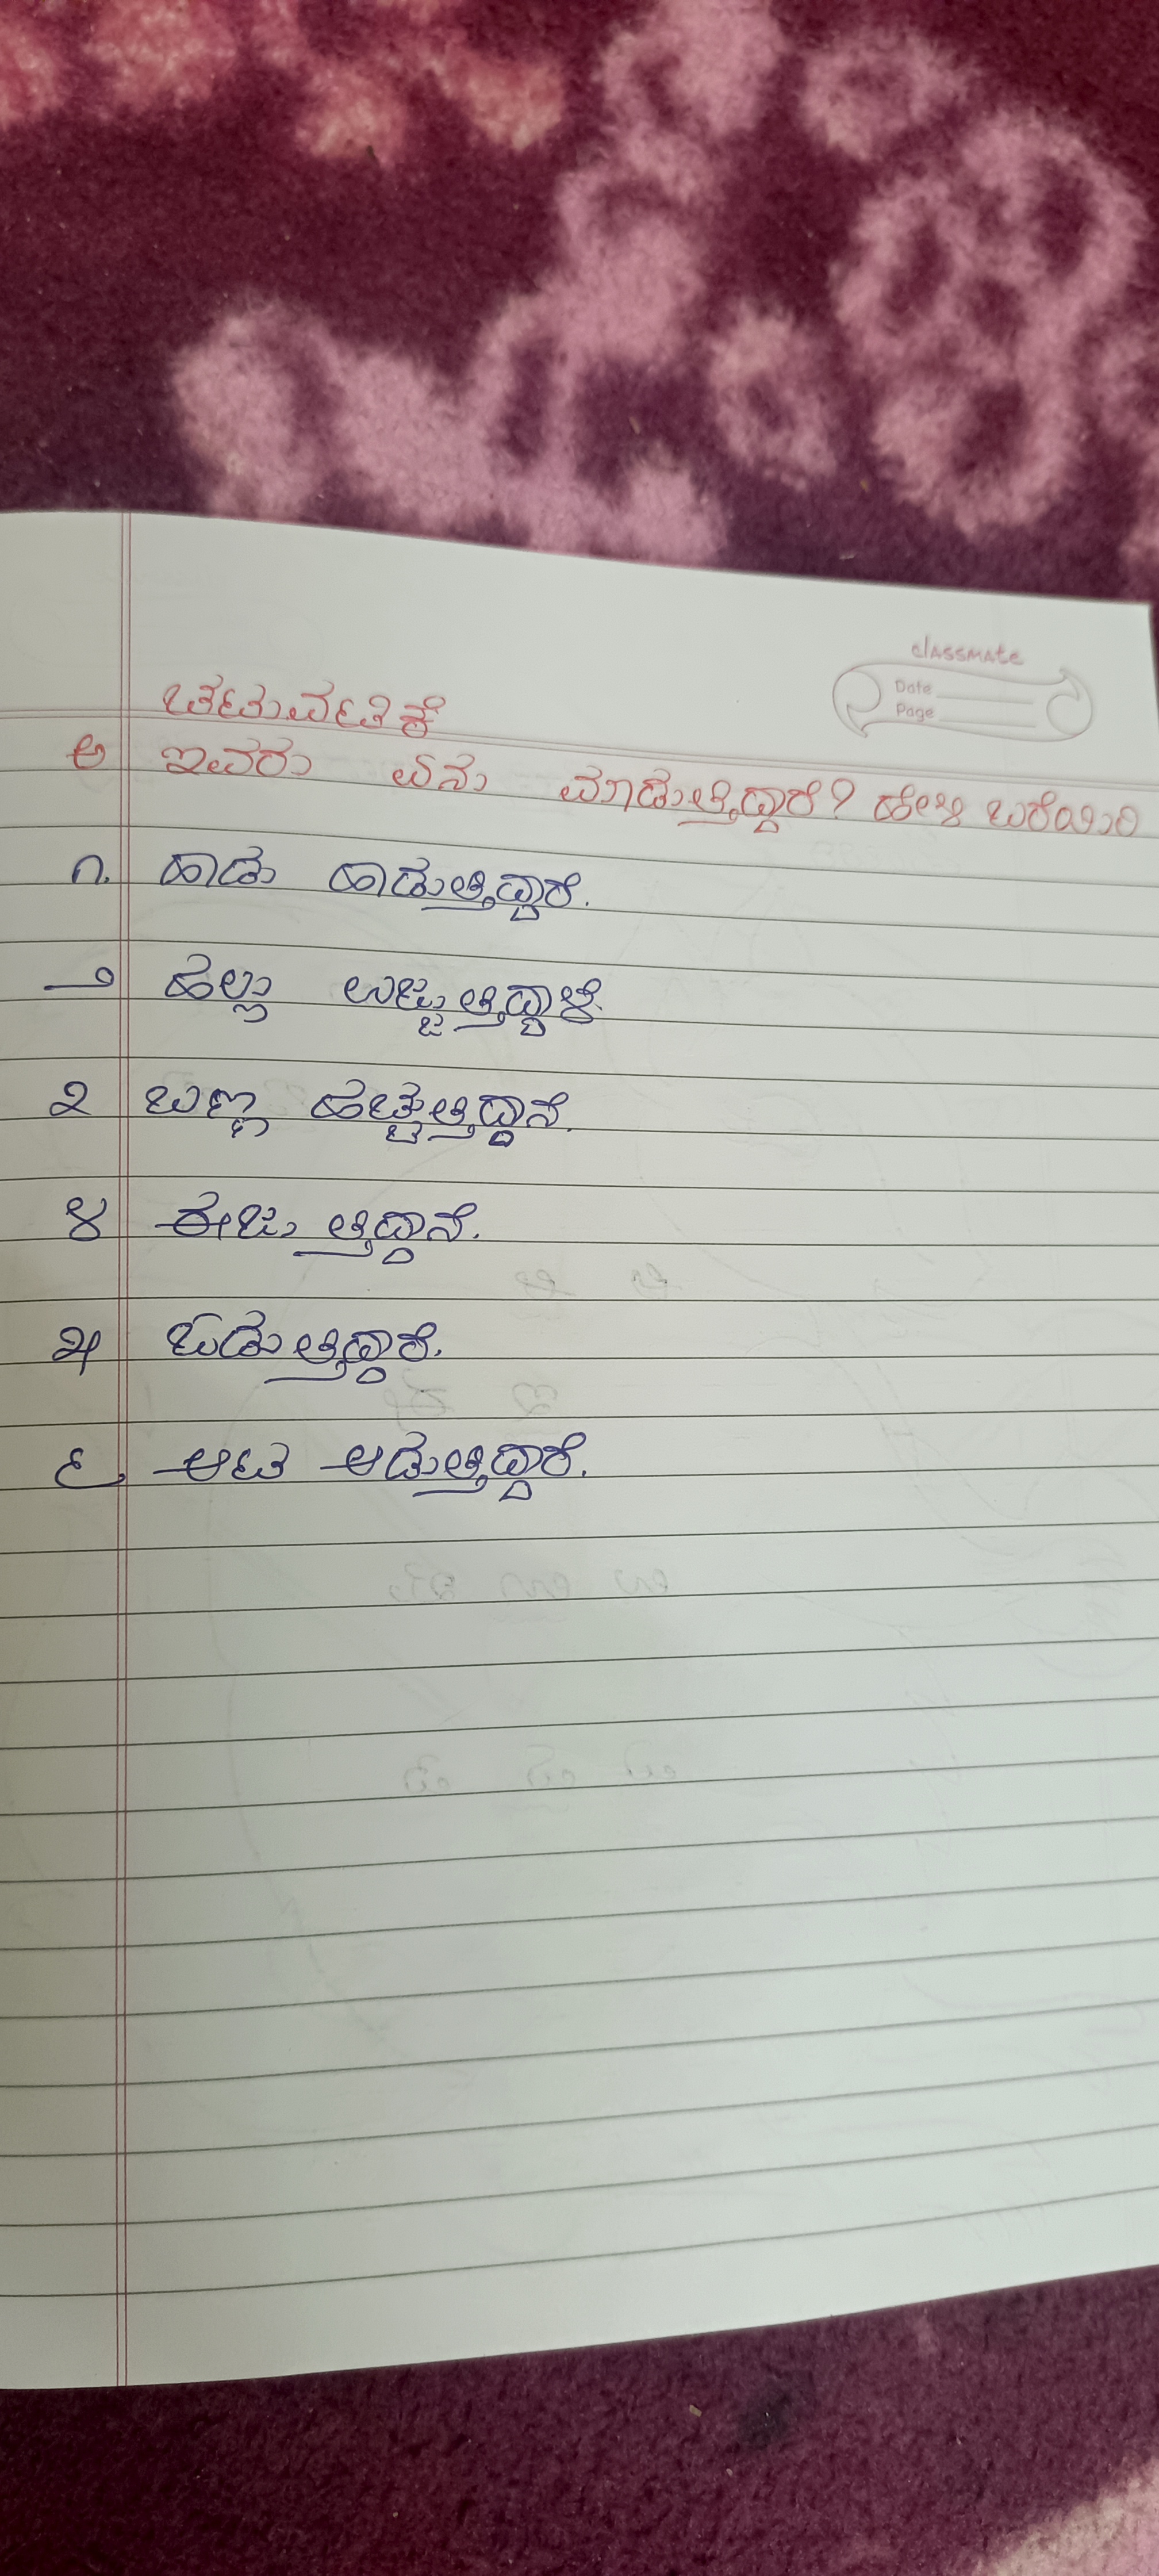 classmate
Date
Page
ಚಟುವಟಿಕೆ
ಅ ಇವರು ಏನು ಮಾಡುತ್ತಿದ್ದಾರೆ? ಹೇಳಿ ಬರೆಯಿರಿ
೧. ಹಾಡು ಹಾಡುತ್ತಿದ್ದಾರೆ.
೨ ಹಲ್ಲು ಉಜ್ಜುತ್ತಿದ್ದಾಳೆ.
೩ ಬಣ್ಣ ಹಚ್ಚುತ್ತಿದ್ದಾನೆ.
೪ ಈಜುತ್ತಿದ್ದಾನೆ.
೫ ಓಡುತ್ತಿದ್ದಾರೆ.
೬ ಆಟ ಆಡುತ್ತಿದ್ದಾರೆ.